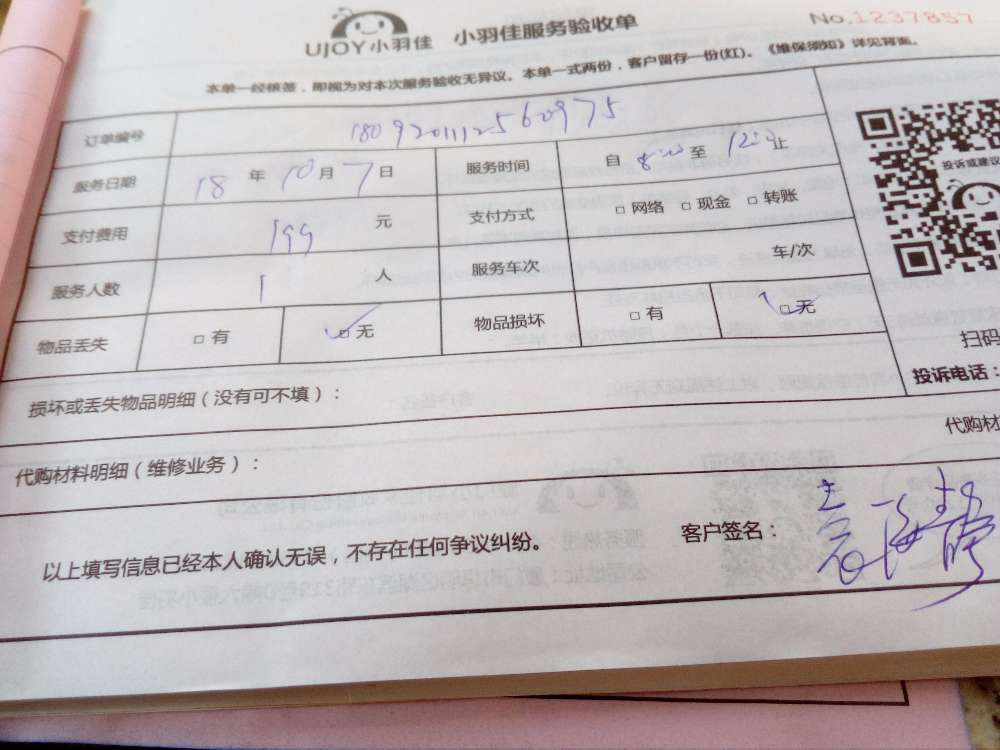 UJOY小羽佳 小羽佳服务验收单 No.1237857
本单一经核签，即视为对本次服务验收无异议。本单一式两份，客户留存一份(红)。《维保须知》详见背面。
订单编号 1809201112560975
服务日期 18 年 10 月 7 日 服务时间 自 8:00 至 12:00 止
支付费用 199 元 支付方式 □ 网络 □ 现金 □ 转账
服务人数 1 人 服务车次 车/次
物品丢失 □ 有 □ 无 物品损坏 □ 有 □ 无
投诉或建议
扫码
投诉电话：
损坏或丢失物品明细（没有可不填）：
代购材
代购材料明细（维修业务）：
以上填写信息已经本人确认无误，不存在任何争议纠纷。 客户签名：